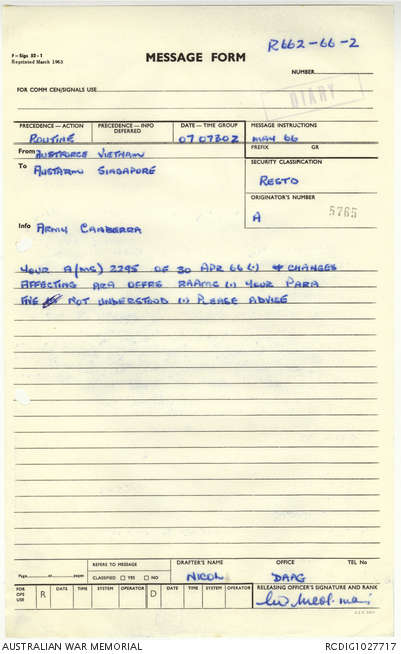 R662-66-2
F-Sigs 52-1
Reprinted March 1963
MESSAGE FORM
NUMBER
FOR COMM CEN/SIGNALS USE
DIARY
PRECEDENCE—ACTION
PRECEDENCE—INFO
DEFERRED
DATE—TIME GROUP
MESSAGE INSTRUCTIONS
ROUTINE
070730Z
MAY 66
From AUSTFORCE VIETNAM
PREFIX GR
To AUSTARM SINGAPORE
SECURITY CLASSIFICATION
RESTD
ORIGINATOR'S NUMBER
A 5765
Info ARMY CANBERRA
YOUR A(MS) 2295 OF 30 APR 66 (.) CHANGES
AFFECTING ARA OFFRS RAAMC (.) YOUR PARA
FIVE NOT UNDERSTOOD (.) PLEASE ADVISE
REFERS TO MESSAGE
DRAFTER'S NAME
OFFICE
TEL No
Page of pages
CLASSIFIED YES NO
NICOL
DAAG
FOR
OPS
USE
R DATE TIME SYSTEM OPERATOR D DATE TIME SYSTEM OPERATOR
RELEASING OFFICER'S SIGNATURE AND RANK
AUSTRALIAN WAR MEMORIAL
RCDIG1027717